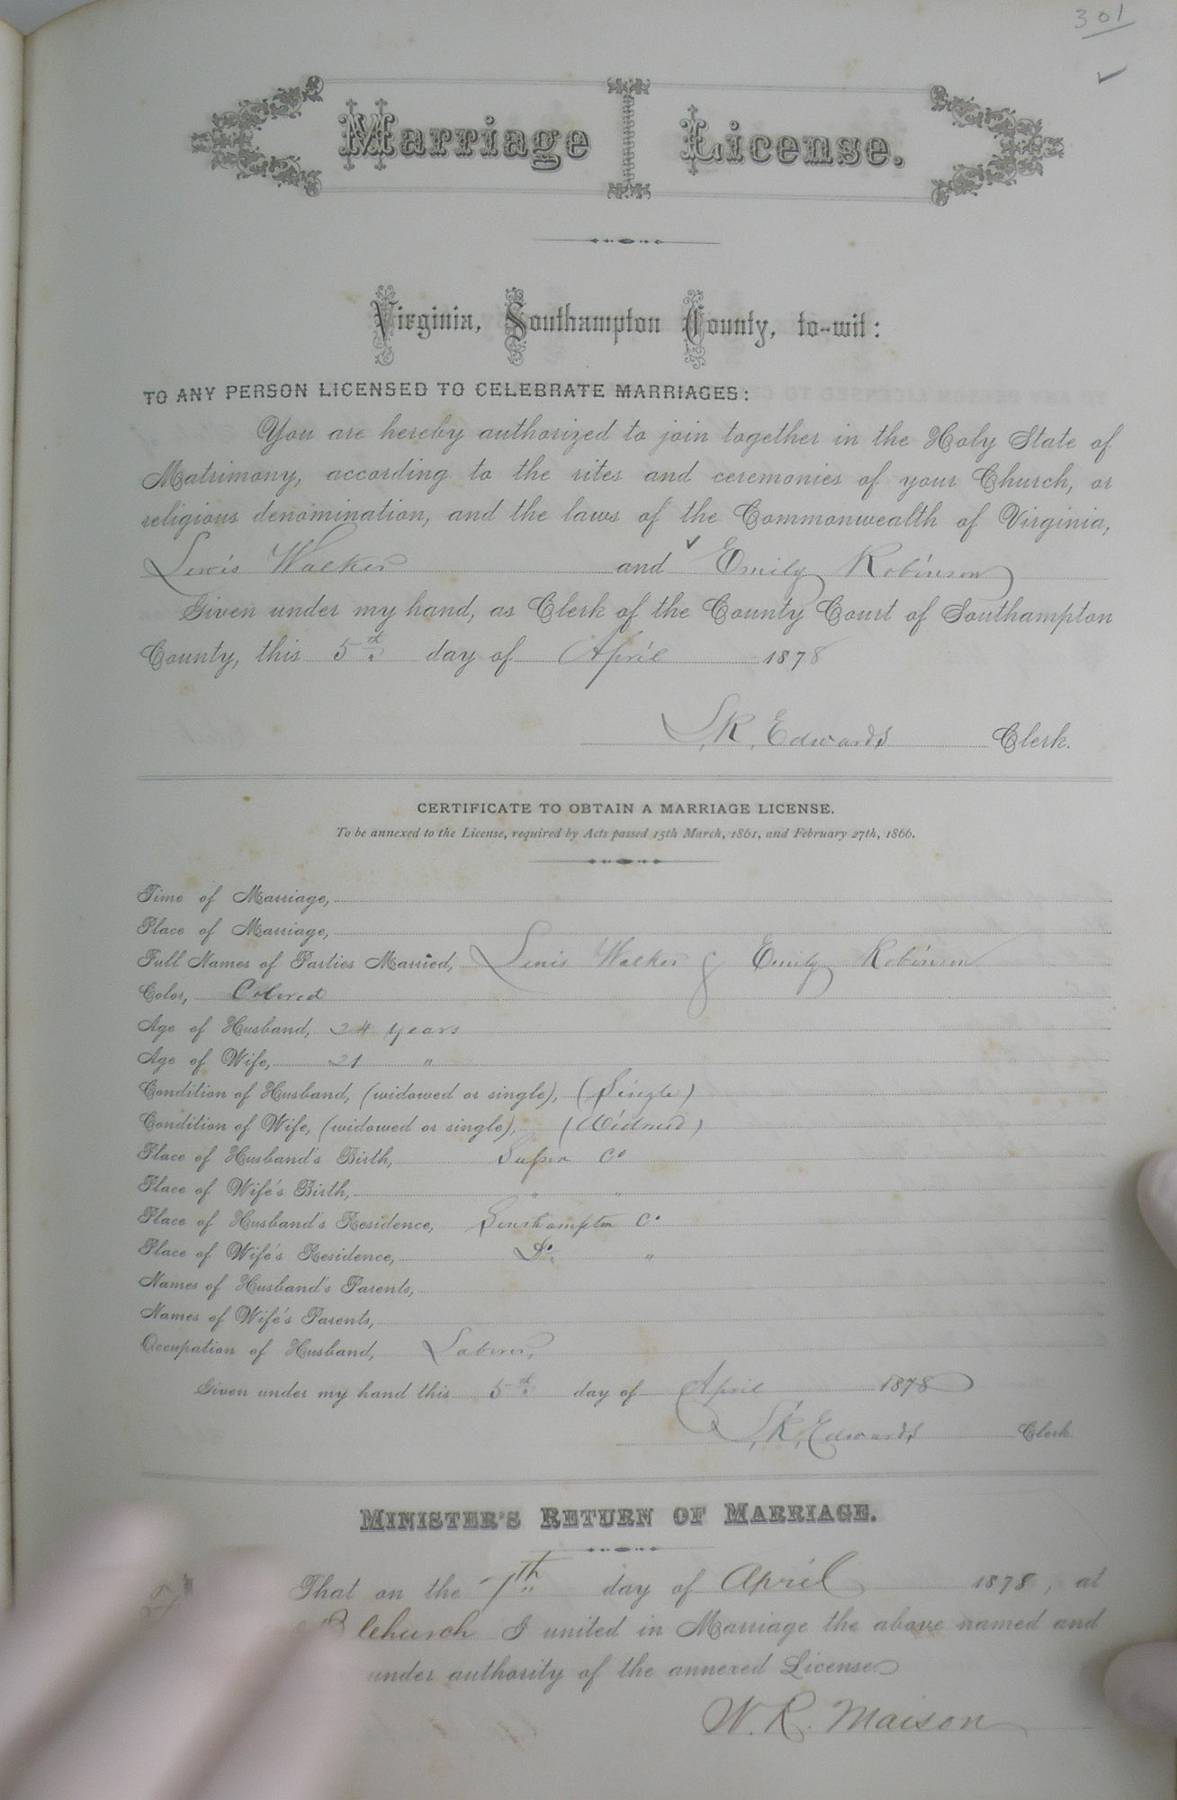 301
Marriage License.
Virginia, Southampton County, to-wit:
TO ANY PERSON LICENSED TO CELEBRATE MARRIAGES:
You are hereby authorized to join together in the Holy State of
Matrimony, according to the rites and ceremonies of your Church, or
religious denomination, and the laws of the Commonwealth of Virginia,
Lewis Walker and Emily Robinson
Given under my hand, as Clerk of the County Court of Southampton
County, this 5th day of April 1878
S.R. Edwards Clerk.
CERTIFICATE TO OBTAIN A MARRIAGE LICENSE.
To be annexed to the License, required by Acts passed 15th March, 1861, and February 27th, 1866.
Time of Marriage,
Place of Marriage,
Full Names of Parties Married, Lewis Walker & Emily Robinson
Color, Colored
Age of Husband, 24 years
Age of Wife, 21 "
Condition of Husband, (widowed or single), (Single)
Condition of Wife, (widowed or single), (Widowed)
Place of Husband's Birth, Co
Place of Wife's Birth, " "
Place of Husband's Residence, Southampton Co
Place of Wife's Residence, Do. "
Names of Husband's Parents,
Names of Wife's Parents,
Occupation of Husband, Laborer,
Given under my hand this 5th day of April 1878
S.R. Edwards Clerk
MINISTER'S RETURN OF MARRIAGE.
That on the 7th day of April 1878, at
church I united in Marriage the above named and
under authority of the annexed License
W. R. Maison